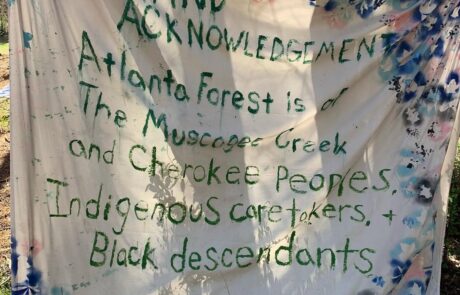 ACKNOWLEDGEMENT
Atlanta Forest is of
The Muscogee Creek
and Cherokee Peoples.
Indigenous caretakers, +
Black descendants